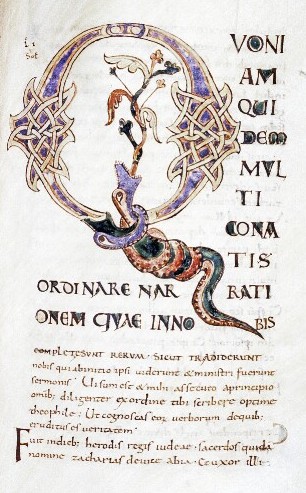 QVONI
AM
QUI
DEM
MVL
TI
CONA
TIS
ORDINARE NARRATI
ONEM QVAE INNOBIS
COMPLETESVNT RERVM. SICUT TRADIDERUNT
nobis qui abinitio ipsi uiderunt & ministri fuerunt
sermonis. Uisum est & mihi assecuto aprincipio
omib; diligenter exordine tibi scribere optime
theophile; Ut cognoscas eor uerborum dequib;
eruditus es ueritatem.
Fuit indieb; herodis regis iudeae. sacerdos quida
nomine zacharias deuice abia. & uxor illi